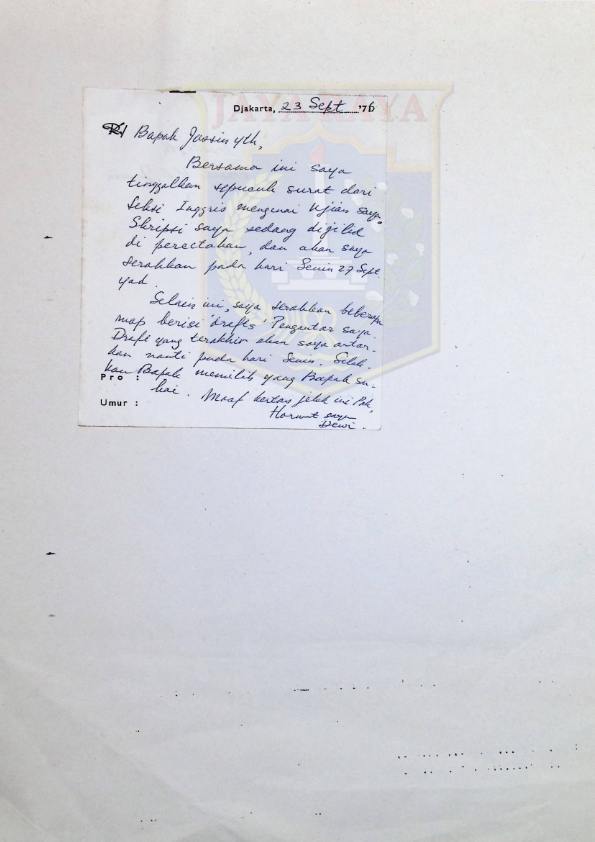 JAYA RAYA
Djakarta, 23 Sept '76
Bapak Jassin yth,
Bersama ini saya
tinggalkan sepucuk surat dari
Seksi Inggris mengenai Ujian saya.
Skripsi saya sedang dijilid
di percetakan, dan akan saya
serahkan pada hari Senin 27 Sept
yad.
Selain ini, saya serahkan beberapa
map berisi 'drafts' Pengantar saya
Draft yang terakhir akan saya antar-
kan nanti pada hari Senin. Silah-
kan Bapak memilih yang Bapak su-
Pro :
kai. Maaf kertas jelek ini Pak,
Umur :
Hormat saya
Dewi.